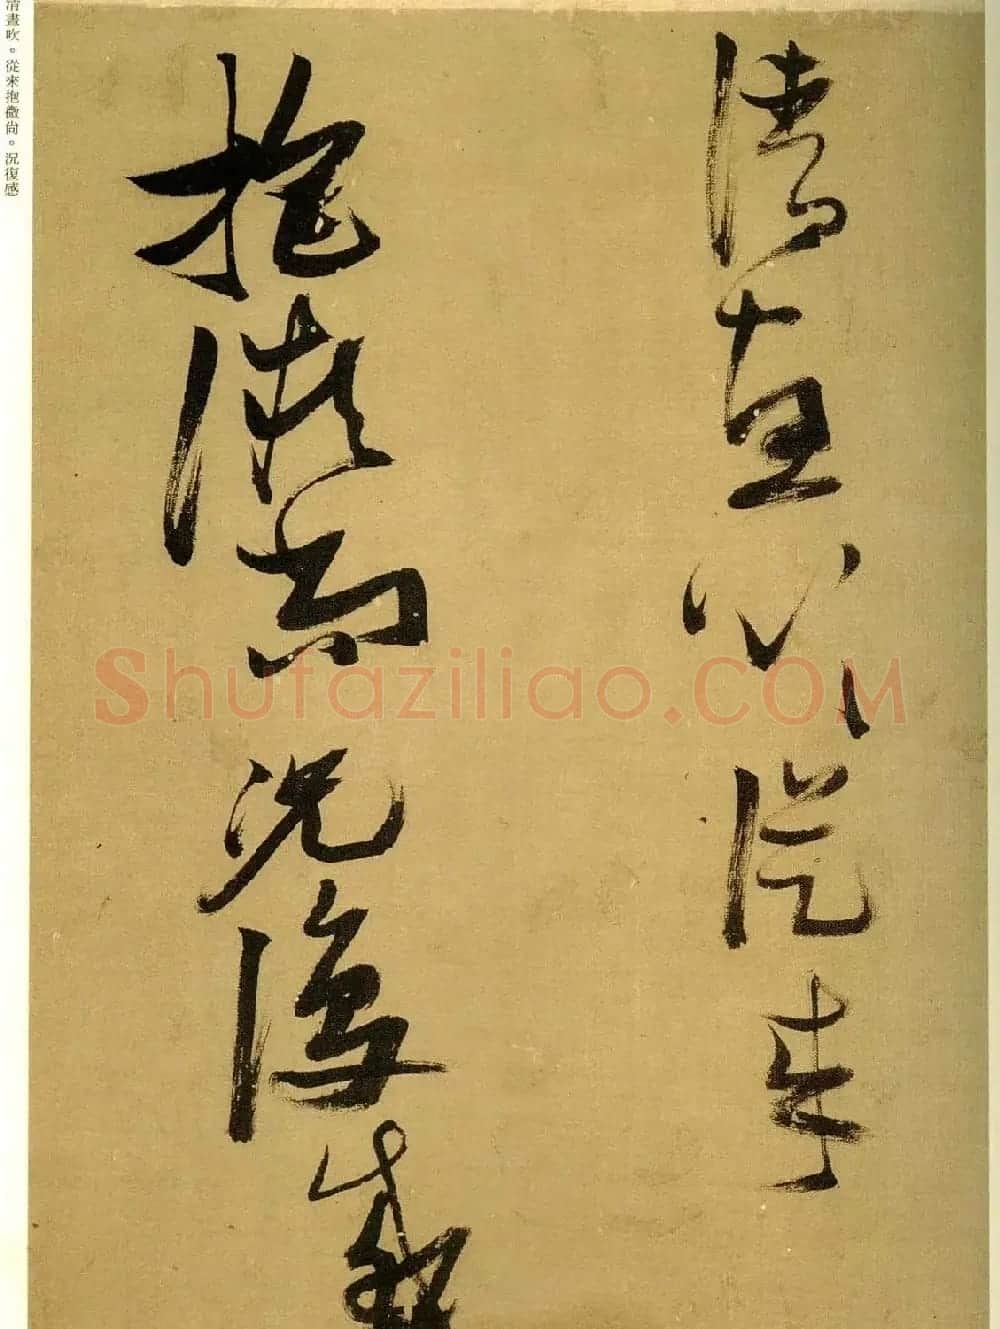 清晝吹從來
抱微尚況復感
清晝吹。從來抱微尚。況復感
Shufaziliao.COM